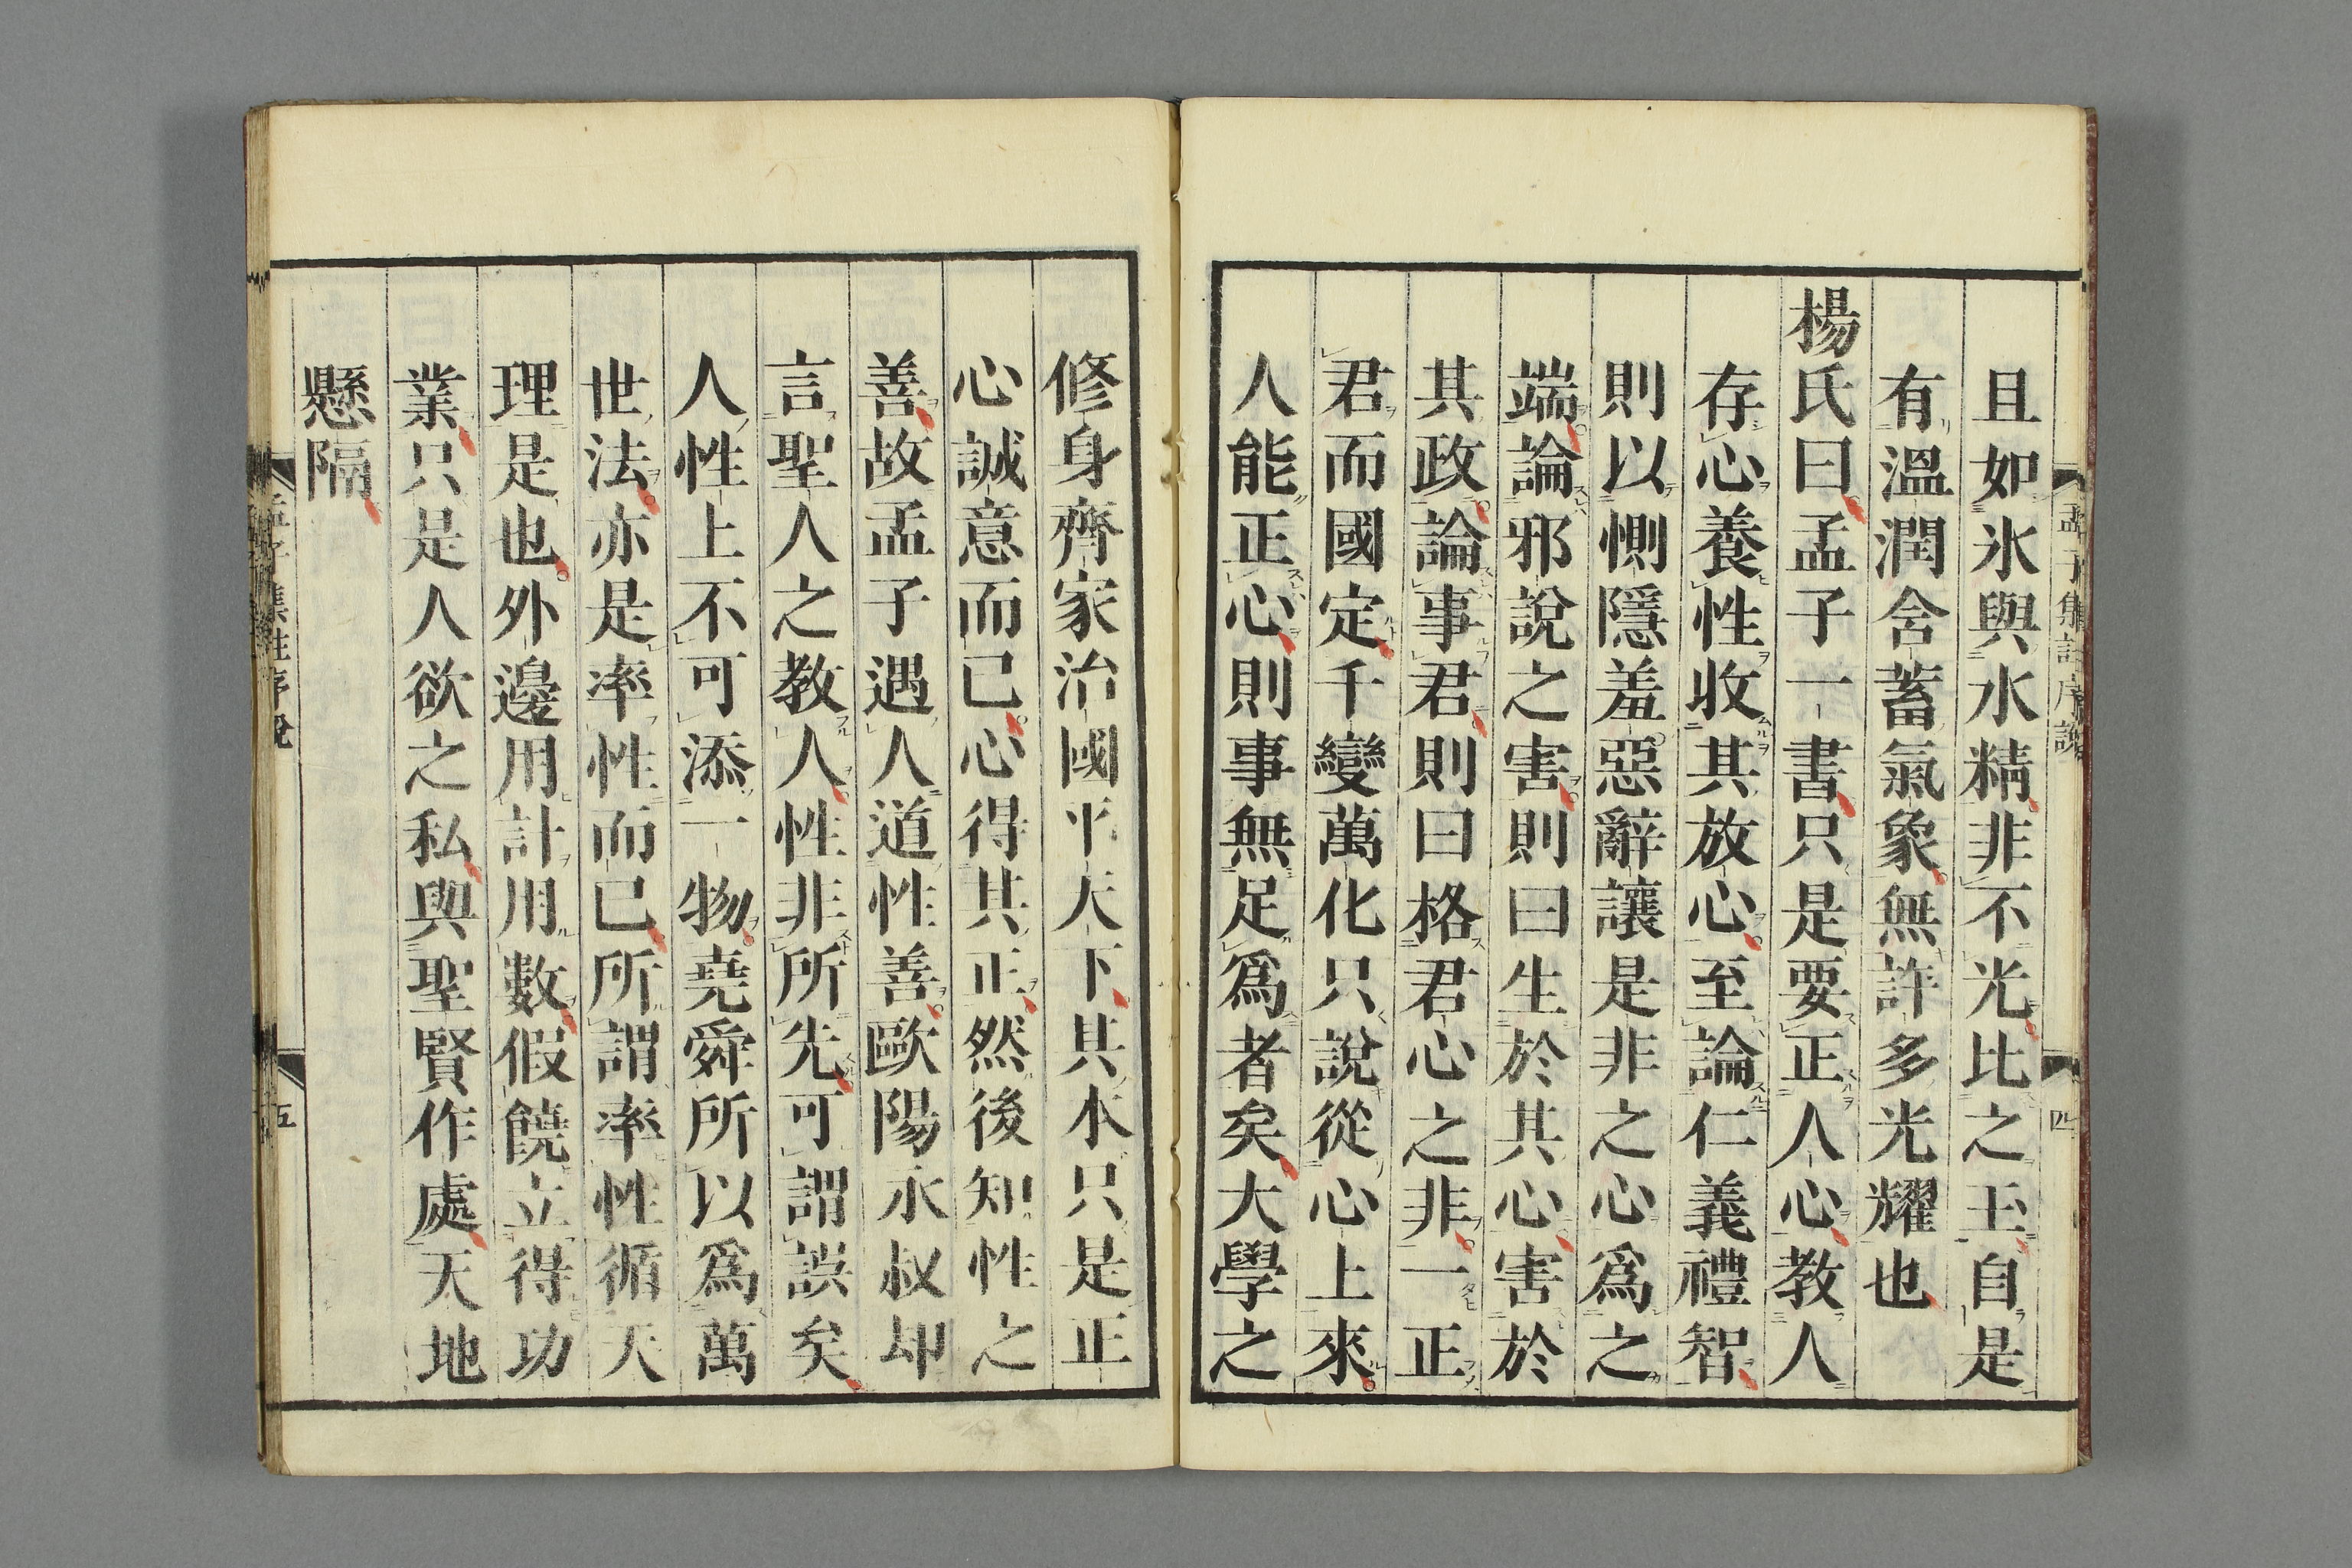 孟子集註序說
四
且如氷與水精非不光比之玉自是
有溫潤含蓄氣象無許多光耀也
楊氏曰孟子一書只是要正人心教人
存心養性收其放心至論仁義禮智
則以惻隱羞惡辭讓是非之心爲之
端論邪說之害則曰生於其心害於
其政論事君則曰格君心之非一正
君而國定千變萬化只說從心上來
人能正心則事無足爲者矣大學之
修身齊家治國平天下其本只是正
心誠意而已心得其正然後知性之
善故孟子遇人道性善歐陽永叔却
言聖人之教人性非所先可謂誤矣
人性上不可添一物堯舜所以爲萬
世法亦是率性而已所謂率性循天
理是也外邊用計用數假饒立得功
業只是人欲之私與聖賢作處天地
懸隔
孟子集註序說
五